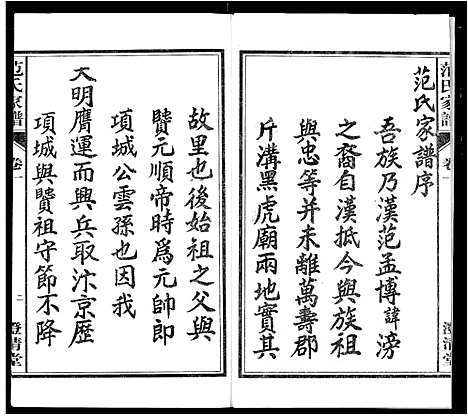 范氏家譜
卷一
澄清堂
范氏家譜序
吾族乃漢范孟博諱滂
之裔自漢抵今與族祖
與忠等并未離萬壽郡
斤溝黑虎廟兩地實其
故里也後始祖之父與
贒元順帝時為元帥即
項城公雲孫也因我
大明膺運而興兵取汴京歷
項城與贒祖守節不降
范氏家譜
卷一
二
澄清堂